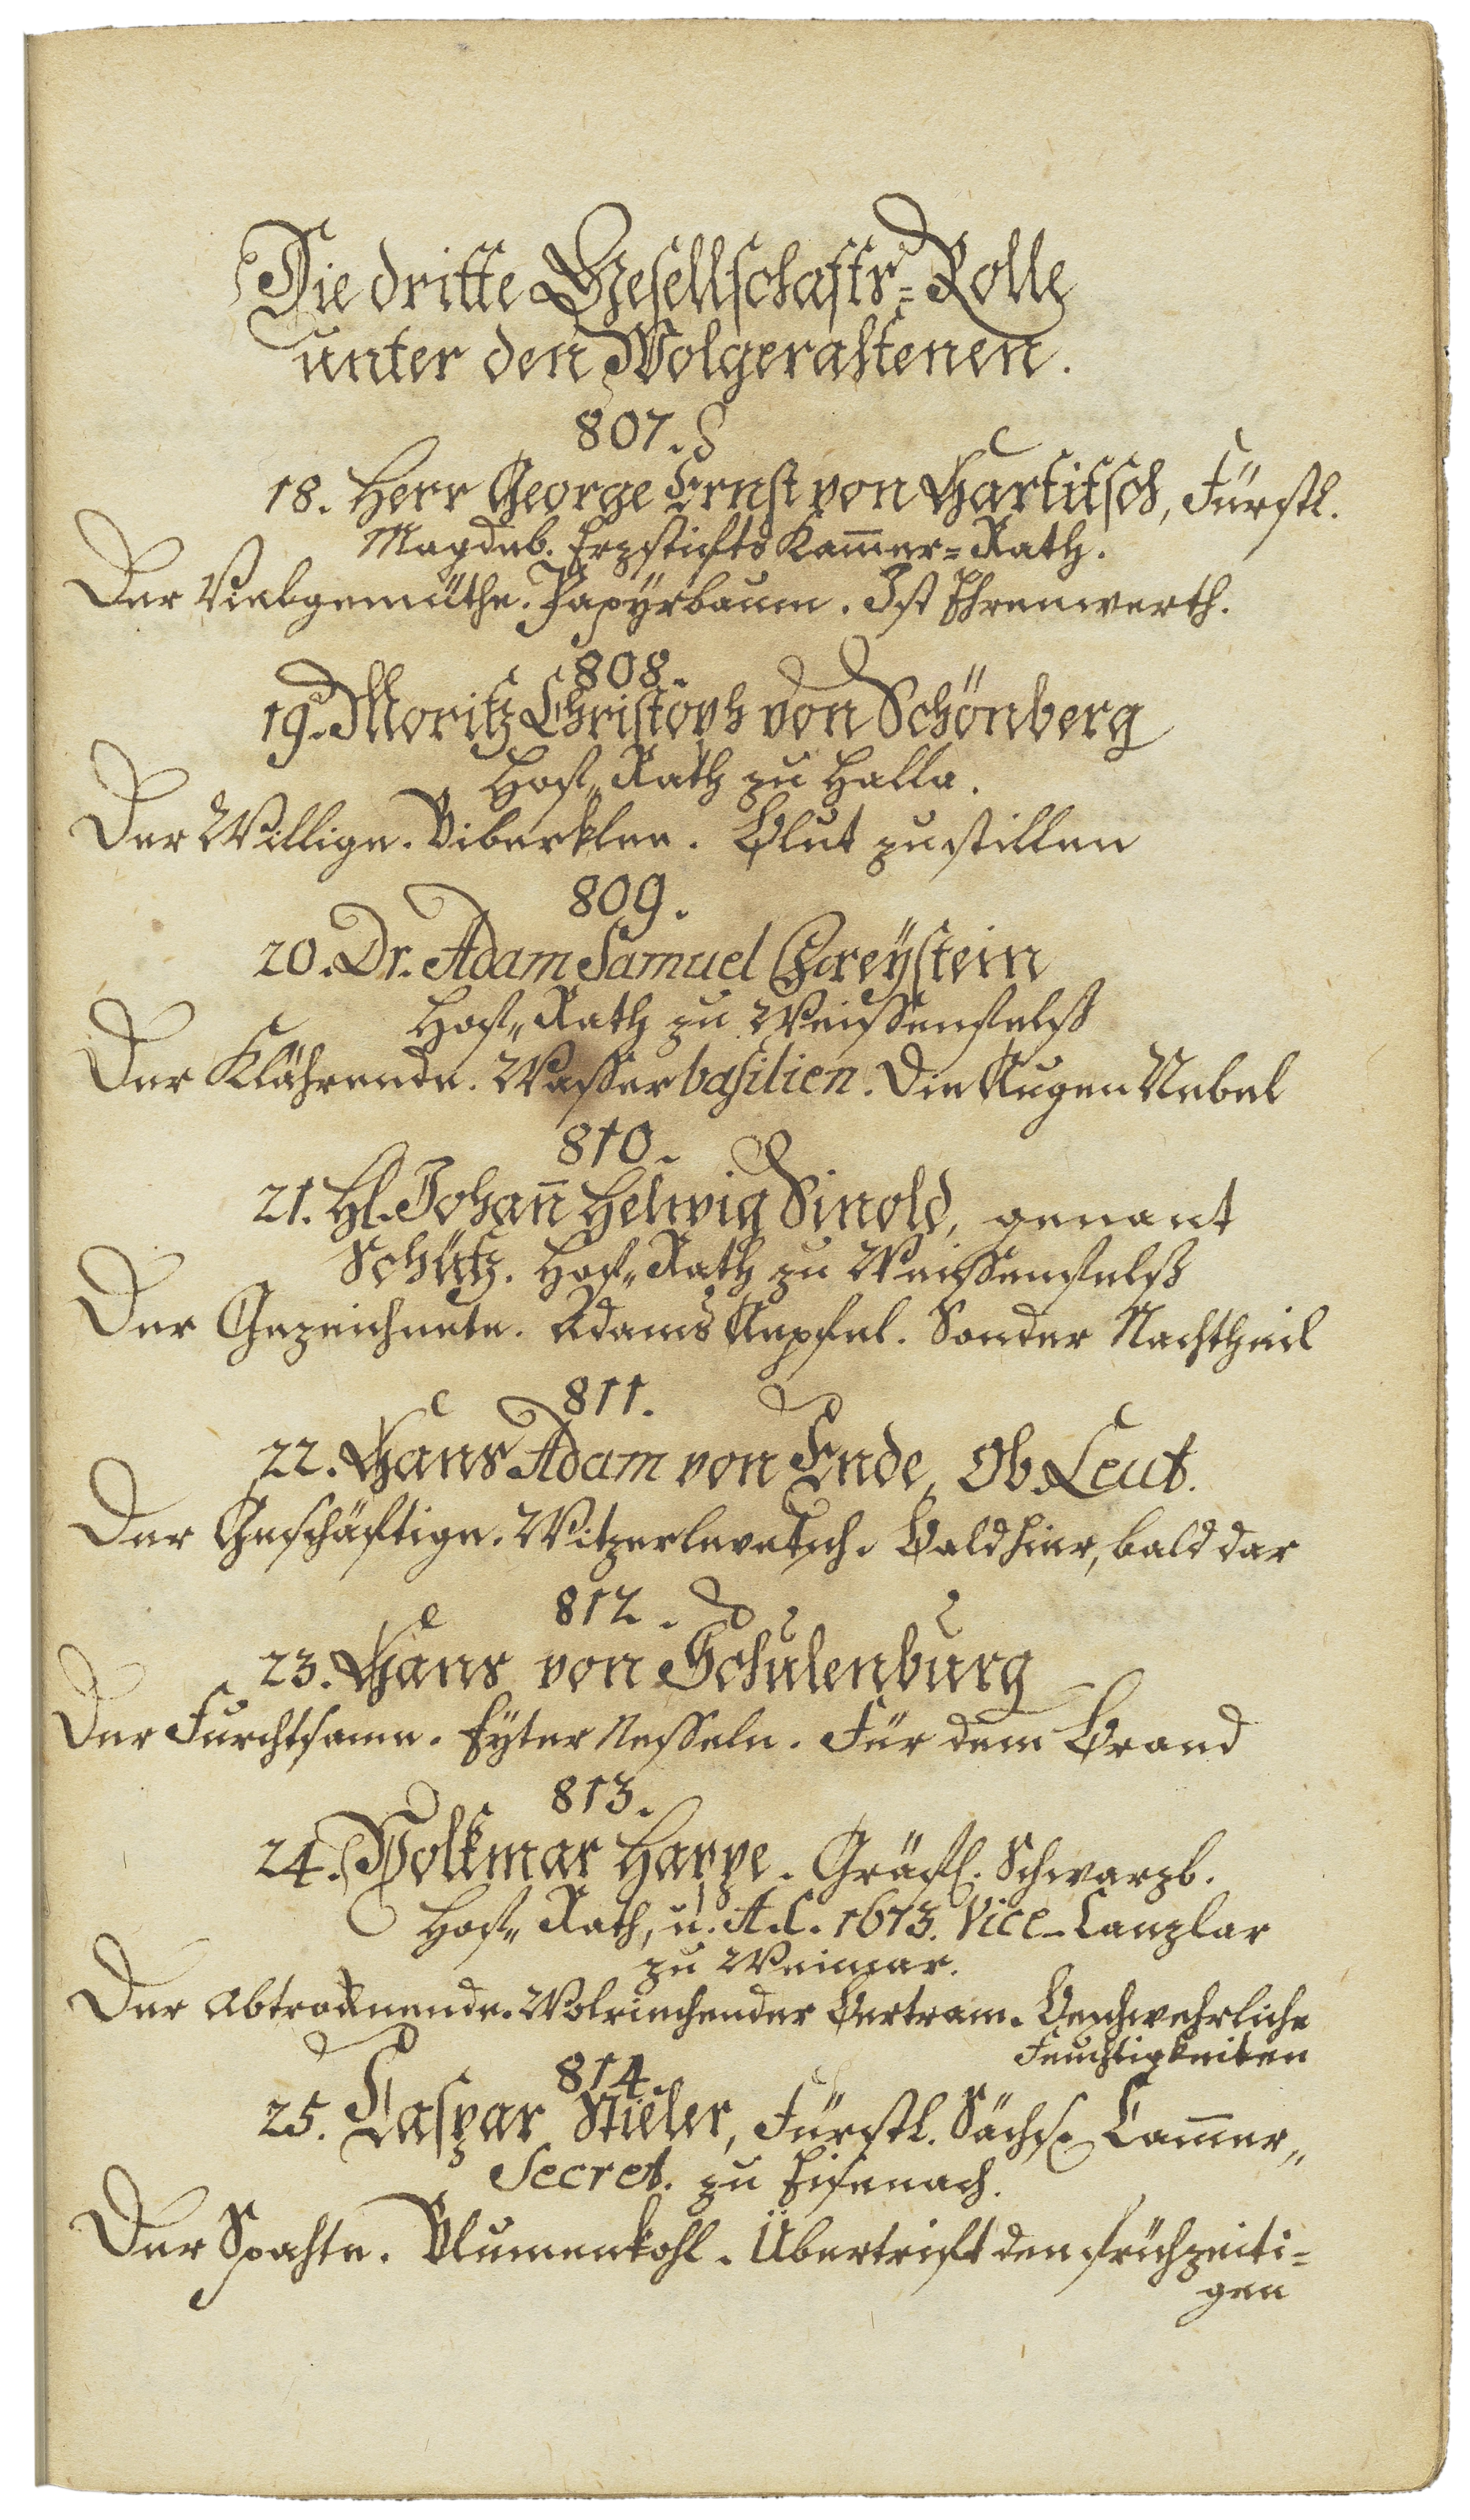 Die dritte Gesellschaffts=Rolle
unter den Wolgerahtenen.
807.
18. Herr George Ernst von Hartitsch, Fürstl.
Magdeb. Erzstiffts Kam̅er=Rath.
Der Liebgemüthe. Papÿrbaum. Ist Ehrenwerth.
808.
19. Moritz Christoph von Schönberg
Hoff„ Rath zu Halla.
Der Willige. Biberklee. Blut zu stillen
809.
20. Dr. Adam Samuel Freÿstein
Hoff„ Rath zu Weissenfelß
Der Klährende. Wasserbasilien. Die Augen Nebel
810.
21. H. Johan̅ Helwig Sinold, genant
Schütz. Hoff„ Rath zu Weissenfelß
Der Gezeichnete. Adams Aepfel. Sonder Nachtheil
811.
22. Hans Adam von Ende, Ob. Leut.
Der Geschäftige. Bald hier, bald dar
812.
23. Hans von Schulenburg
Der Furchtsame. Eyter Nesseln. Für dem Brand
813.
24. Volkmar Happe. Gräfl. Schwarzb.
Hoff„ Rath, u. A.C. 1673. Vice-Canzlar
zu Weimar.
Der Abtrocknende. Wolriechender Bertram. Beschwehrliche
Feuchtigkeiten
814.
25. Caspar Stieler, Fürstl. Sächs. Cam̅er„
Secret. zu Eisenach.
Der Spahte. Blumenkohl. Übertrift den frühzeiti=
gen